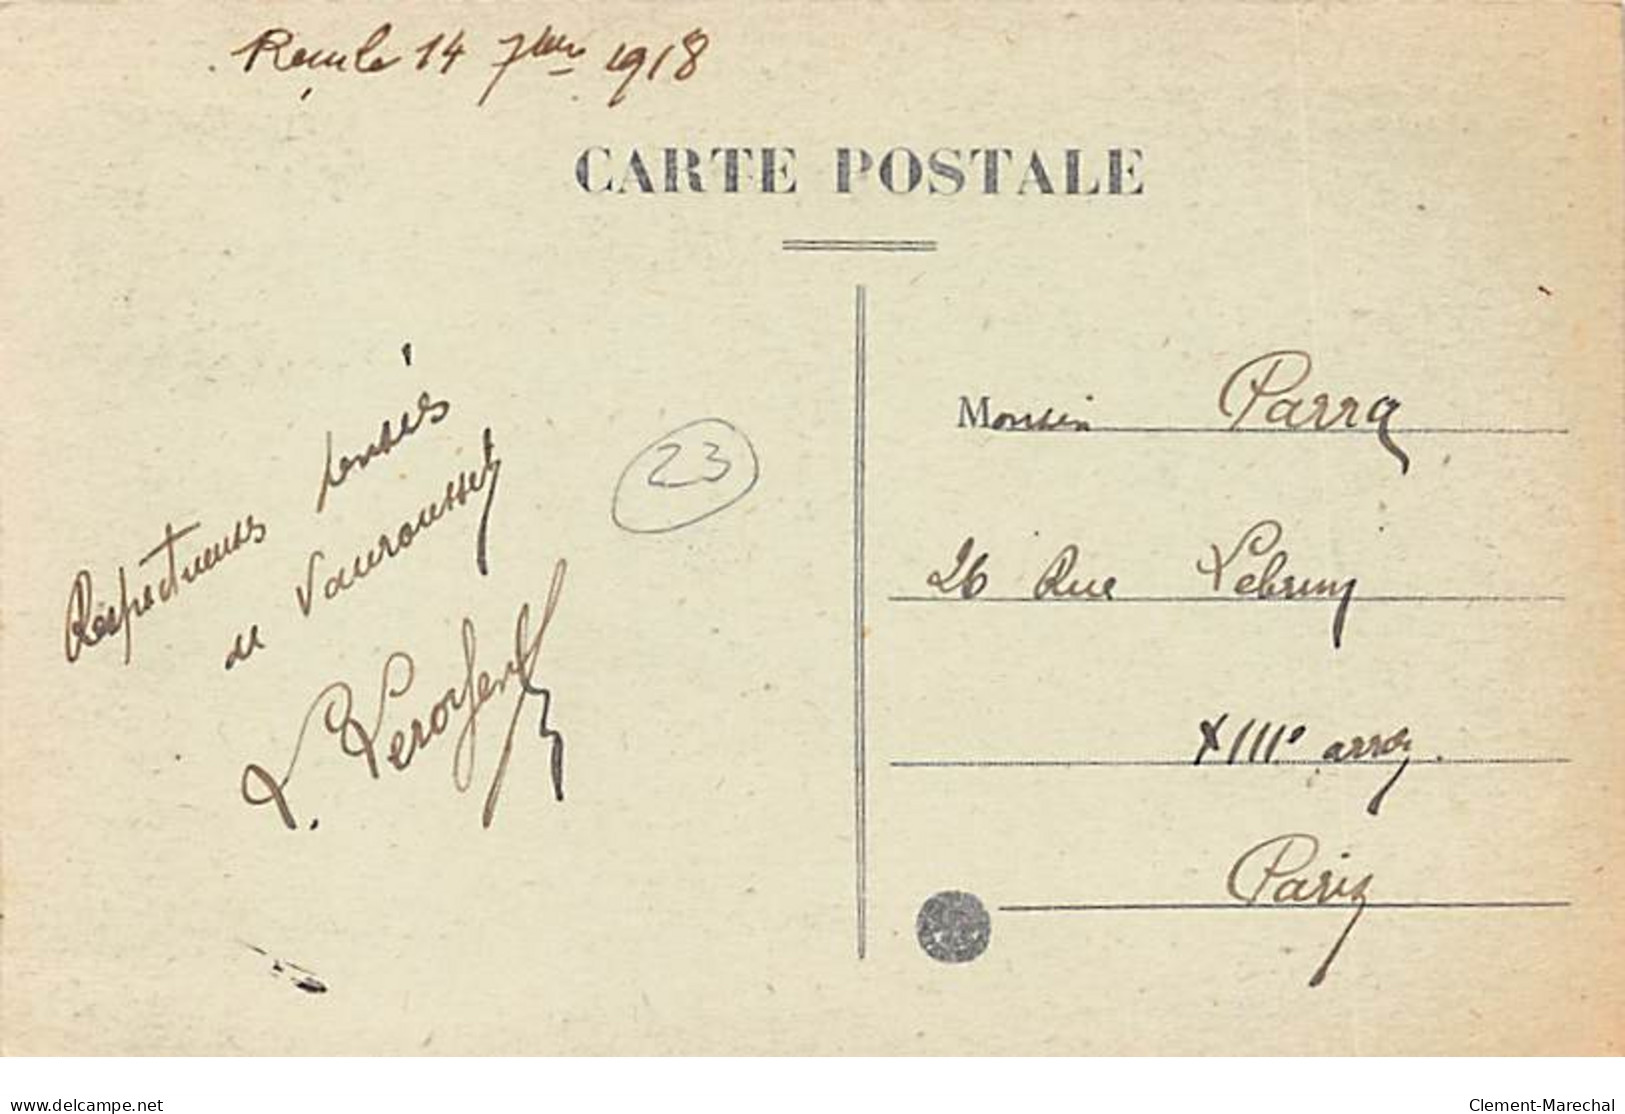 Reçu le 14 7bre 1918
CARTE POSTALE
Respectueuses pensées
de Vauroussel
L.
23
Monsieur Parra
26 Rue Lebrun
XIIIe arrdt.
Paris
delcampe.net
Clement-Marechal